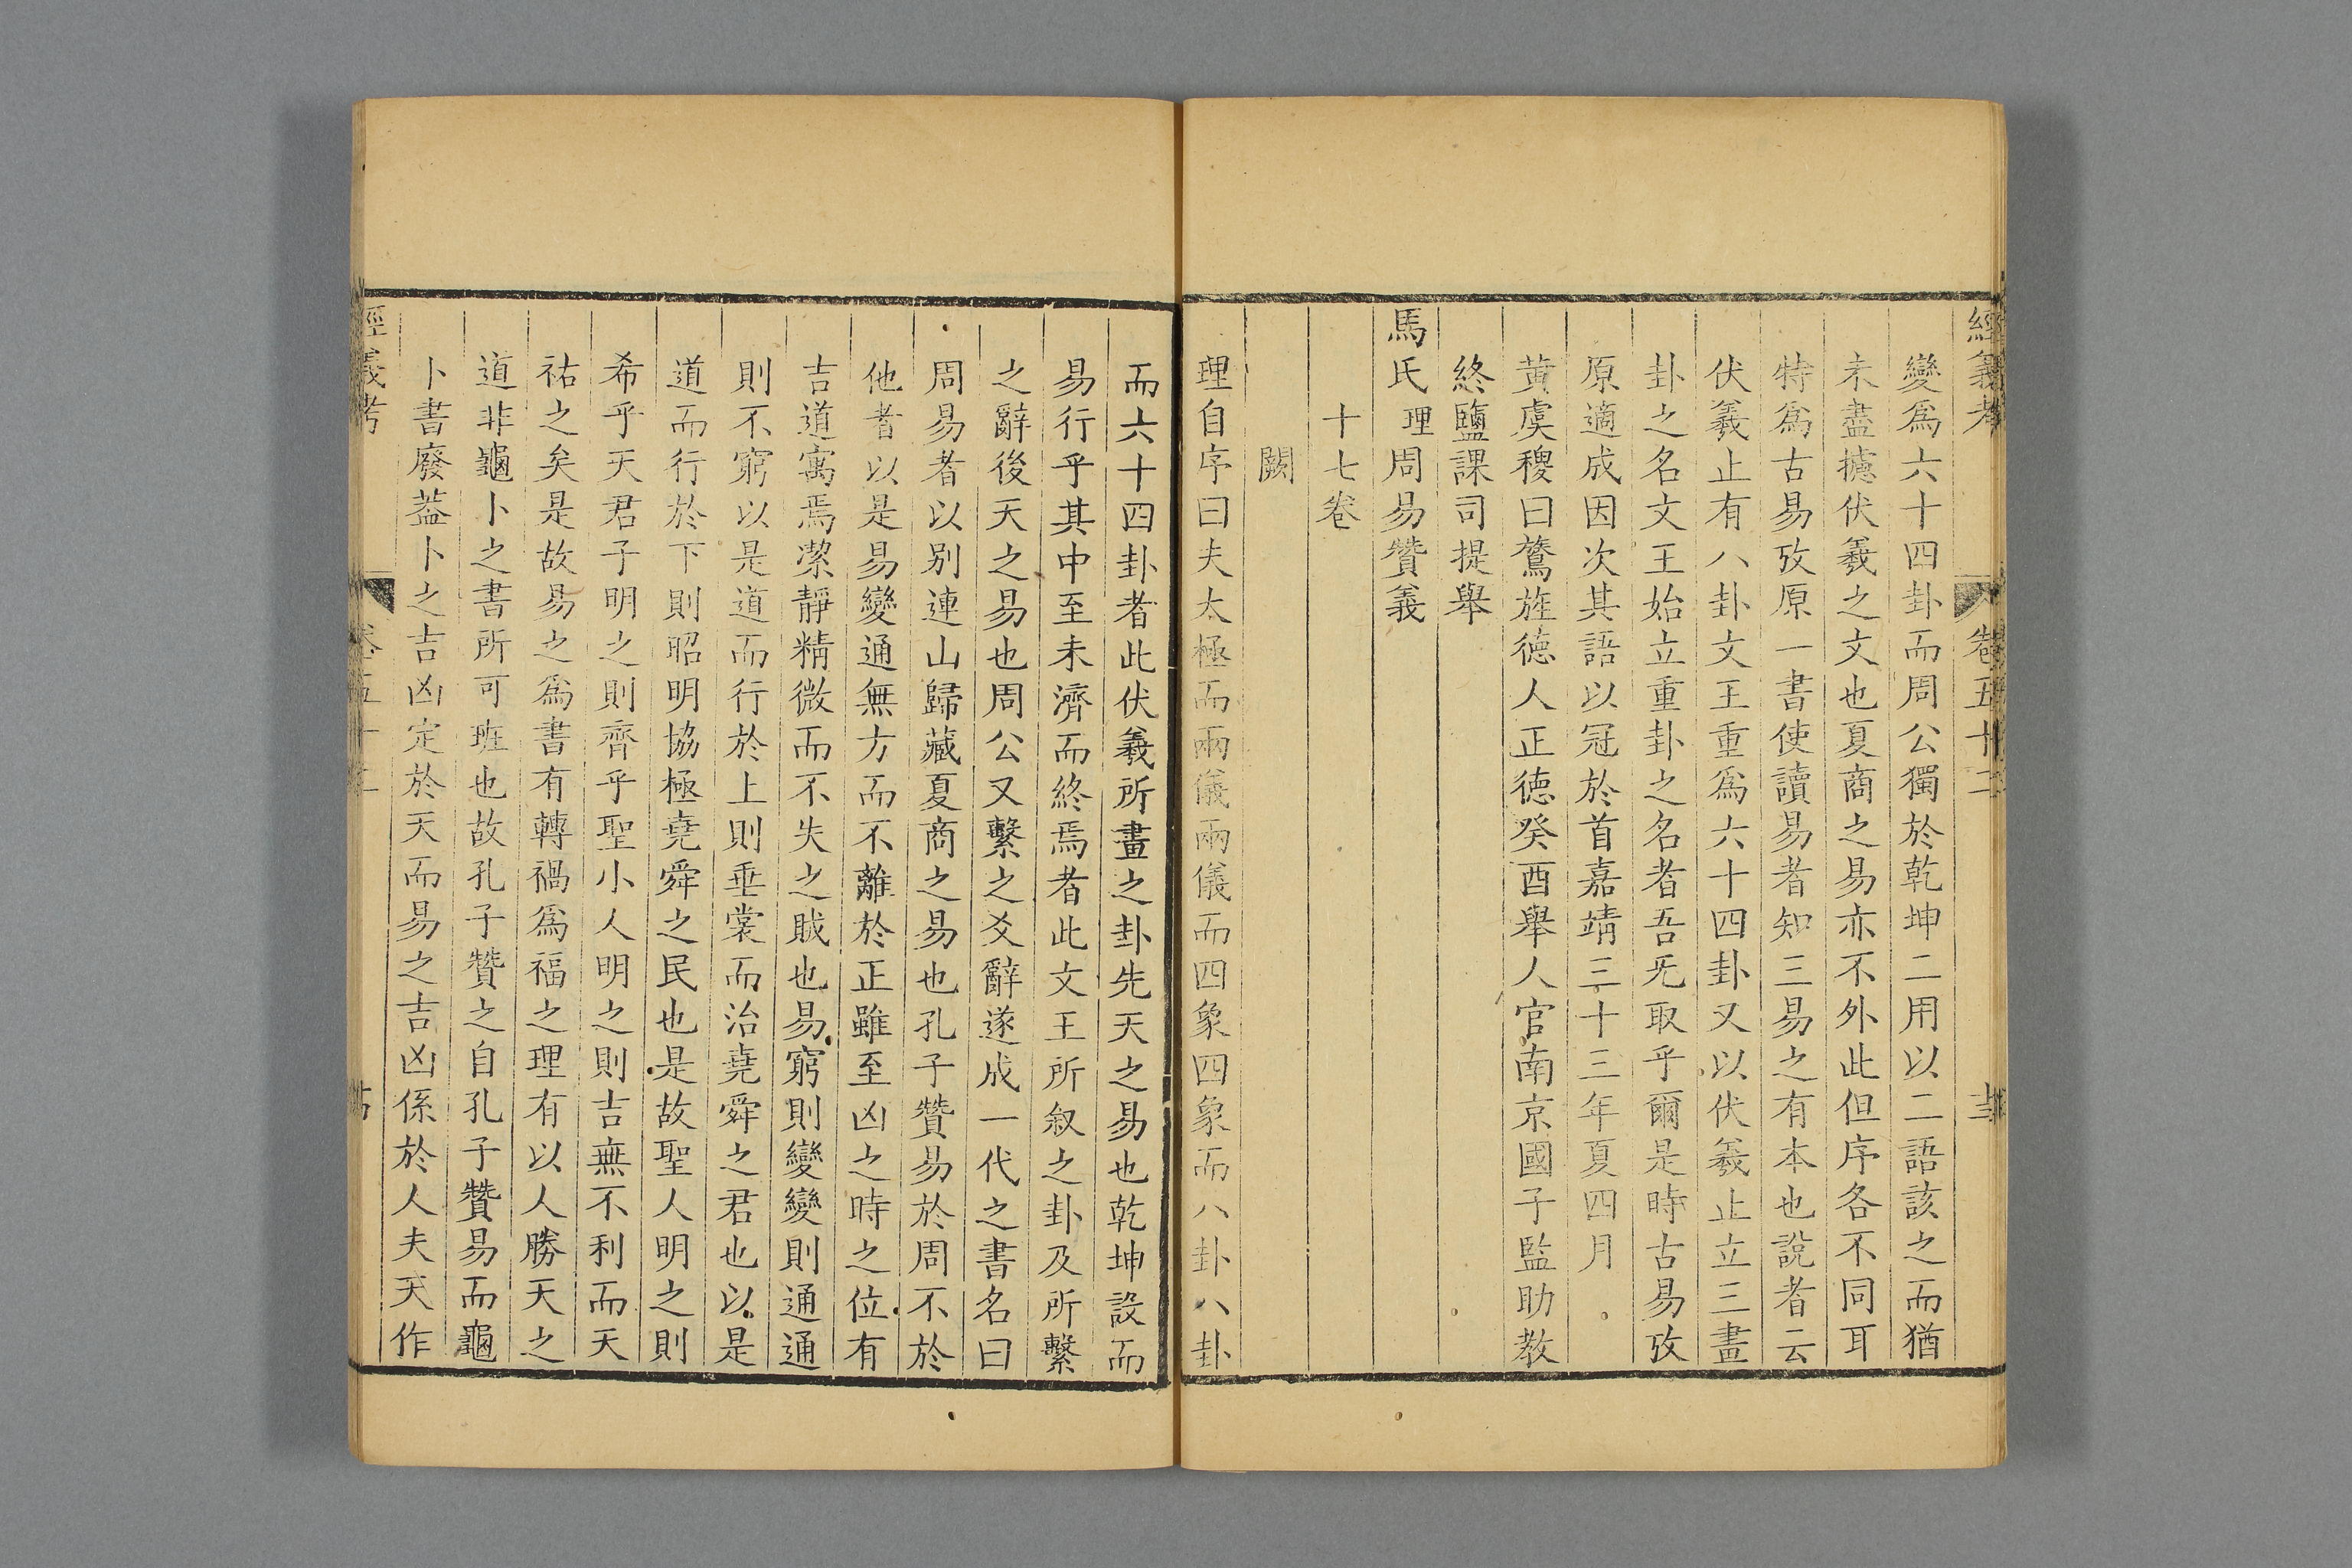 經義考 卷五十二
變爲六十四卦而周公獨於乾坤二用以二語該之而猶
未盡攄伏羲之文也夏商之易亦不外此但序各不同耳
特爲古易攷原一書使讀易者知三易之有本也說者云
伏羲止有八卦文王重爲六十四卦又以伏羲止立三畫
卦之名文王始立重卦之名者吾旡取乎爾是時古易攷
原適成因次其語以冠於首嘉靖三十三年夏四月
黄虞稷曰鶩旌德人正德癸酉舉人官南京國子監助教
終鹽課司提舉
馬氏理周易贊義
十七卷
闕
理自序曰夫太極而兩儀兩儀而四象四象而八卦八卦
而六十四卦者此伏羲所畫之卦先天之易也乾坤設而
易行乎其中至未濟而終焉者此文王所叙之卦及所繫
之辭後天之易也周公又繫之爻辭遂成一代之書名曰
周易者以别連山歸藏夏商之易也孔子贊易於周不於
他者以是易變通無方而不離於正雖至凶之時之位有
吉道寓焉潔靜精微而不失之賊也易窮則變變則通通
則不窮以是道而行於上則垂裳而治堯舜之君也以是
道而行於下則昭明協極堯舜之民也是故聖人明之則
希乎天君子明之則齊乎聖小人明之則吉無不利而天
祐之矣是故易之爲書有轉禍爲福之理有以人勝天之
道非龜卜之書所可班也故孔子贊之自孔子贊易而龜
卜書廢葢卜之吉凶定於天而易之吉凶係於人夫天作
經義考 卷五十二